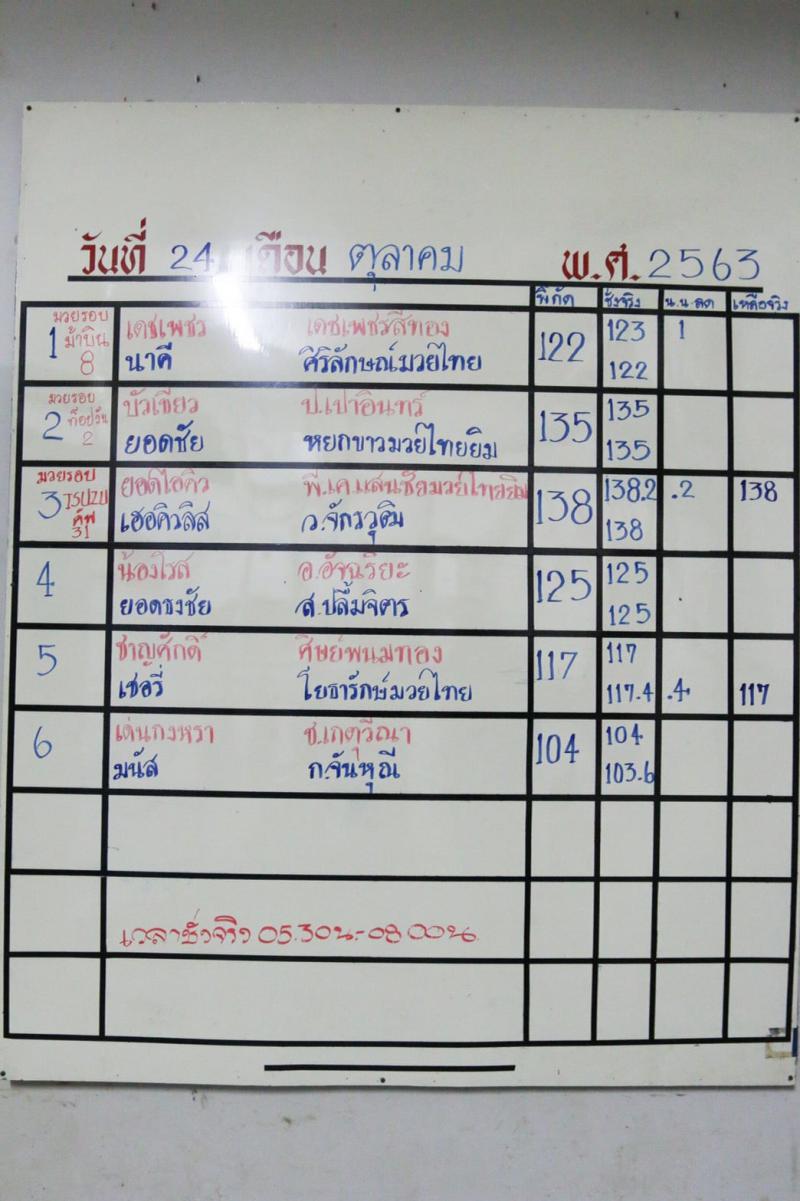 วันที่ 24 เดือน ตุลาคม พ.ศ. 2563
พิกัด ชั่งจริง น.น.ลด เหลือจริง
มวยรอบ
1 ม้าบิน 8 เดชเพชร เดชเพชรสีทอง 122 123 1
นาคี ศิริลักษณ์มวยไทย 122
มวยรอบ
2 ท็อปวัน 2 บัวเขียว ป.เปาอินทร์ 135 135
ยอดชัย หยกขาวมวยไทยยิม 135
มวยรอบ
3 ISUZU คัพ 31 ยอดไอคิว พี.เค.แสนชัยมวยไทยยิม 138 138.2 .2 138
เฮอคิวลิส ว.จักรวุฒิ 138
4 น้องโรส อ.อัจฉริยะ 125 125
ยอดธงชัย ส.ปลื้มจิตร 125
5 ชาญศักดิ์ ศิษย์พนมทอง 117 117
เชอรี่ โยธารักษ์มวยไทย 117.4 .4 117
6 เด่นกงหรา ช.เกตุวีณา 104 104
มนัส ก.จันหุณี 103.6
เวลาชั่งจริง 05.30น.-08 00น.